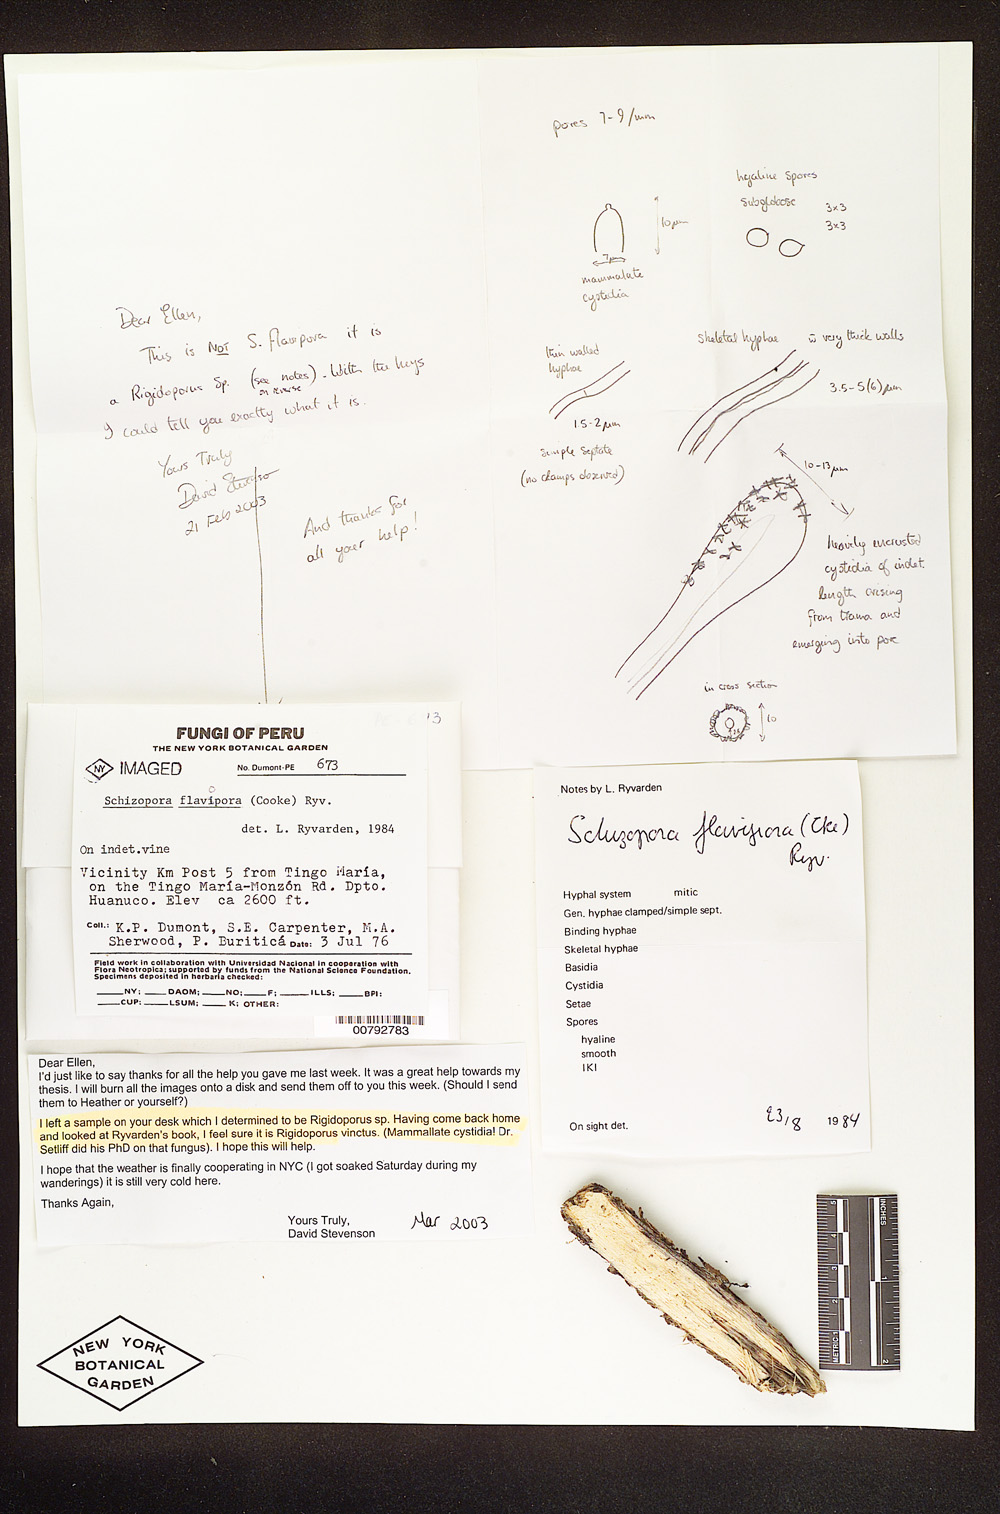 pores 7-9/mm
10 µm
7µ
mammalate
cystidia
hyaline spores
subglobose
3x3
3x3
Dear Ellen,
This is NOT S. flavipora it is
a Rigidoporus Sp. (see notes). With the keys
on reverse
I could tell you exactly what it is.
Yours Truly
David Stevenson
21 Feb 2003
And thanks for
all your help!
thin walled
hyphae
1.5-2 µm
simple septate
(no clamps observed)
Skeletal hyphae w very thick walls
3.5-5(6) µm
10-13µm
heavily encrusted
cystidia of indet.
length arising
from trama and
emerging into pore
in cross section
10
13
FUNGI OF PERU
THE NEW YORK BOTANICAL GARDEN
NY IMAGED
No. Dumont-PE 673
Schizopora flavipora (Cooke) Ryv.
det. L. Ryvarden, 1984
On indet.vine
Vicinity Km Post 5 from Tingo María,
on the Tingo María-Monzón Rd. Dpto.
Huanuco. Elev ca 2600 ft.
Coll.: K.P. Dumont, S.E. Carpenter, M.A.
Sherwood, P. Buriticá Date: 3 Jul 76
Field work in collaboration with Universidad Nacional in cooperation with
Flora Neotropica; supported by funds from the National Science Foundation.
Specimens deposited in herbaria checked:
____NY; ____DAOM; ____NO; ____F; ____ILLS; ____BPI:
____CUP: ____LSUM; ____K; OTHER:
00792783
Notes by L. Ryvarden
Schizopora flavipora (Cke)
Ryv.
Hyphal system mitic
Gen. hyphae clamped/simple sept.
Binding hyphae
Skeletal hyphae
Basidia
Cystidia
Setae
Spores
hyaline
smooth
IKI
On sight det. 23/8 1984
Dear Ellen,
I'd just like to say thanks for all the help you gave me last week. It was a great help towards my
thesis. I will burn all the images onto a disk and send them off to you this week. (Should I send
them to Heather or yourself?)
I left a sample on your desk which I determined to be Rigidoporus sp. Having come back home
and looked at Ryvarden's book, I feel sure it is Rigidoporus vinctus. (Mammallate cystidia! Dr.
Setliff did his PhD on that fungus). I hope this will help.
I hope that the weather is finally cooperating in NYC (I got soaked Saturday during my
wanderings) it is still very cold here.
Thanks Again,
Yours Truly,
David Stevenson
Mar 2003
NEW YORK
BOTANICAL
GARDEN
INCHES
1
2
METRIC 1
2
3
4
5